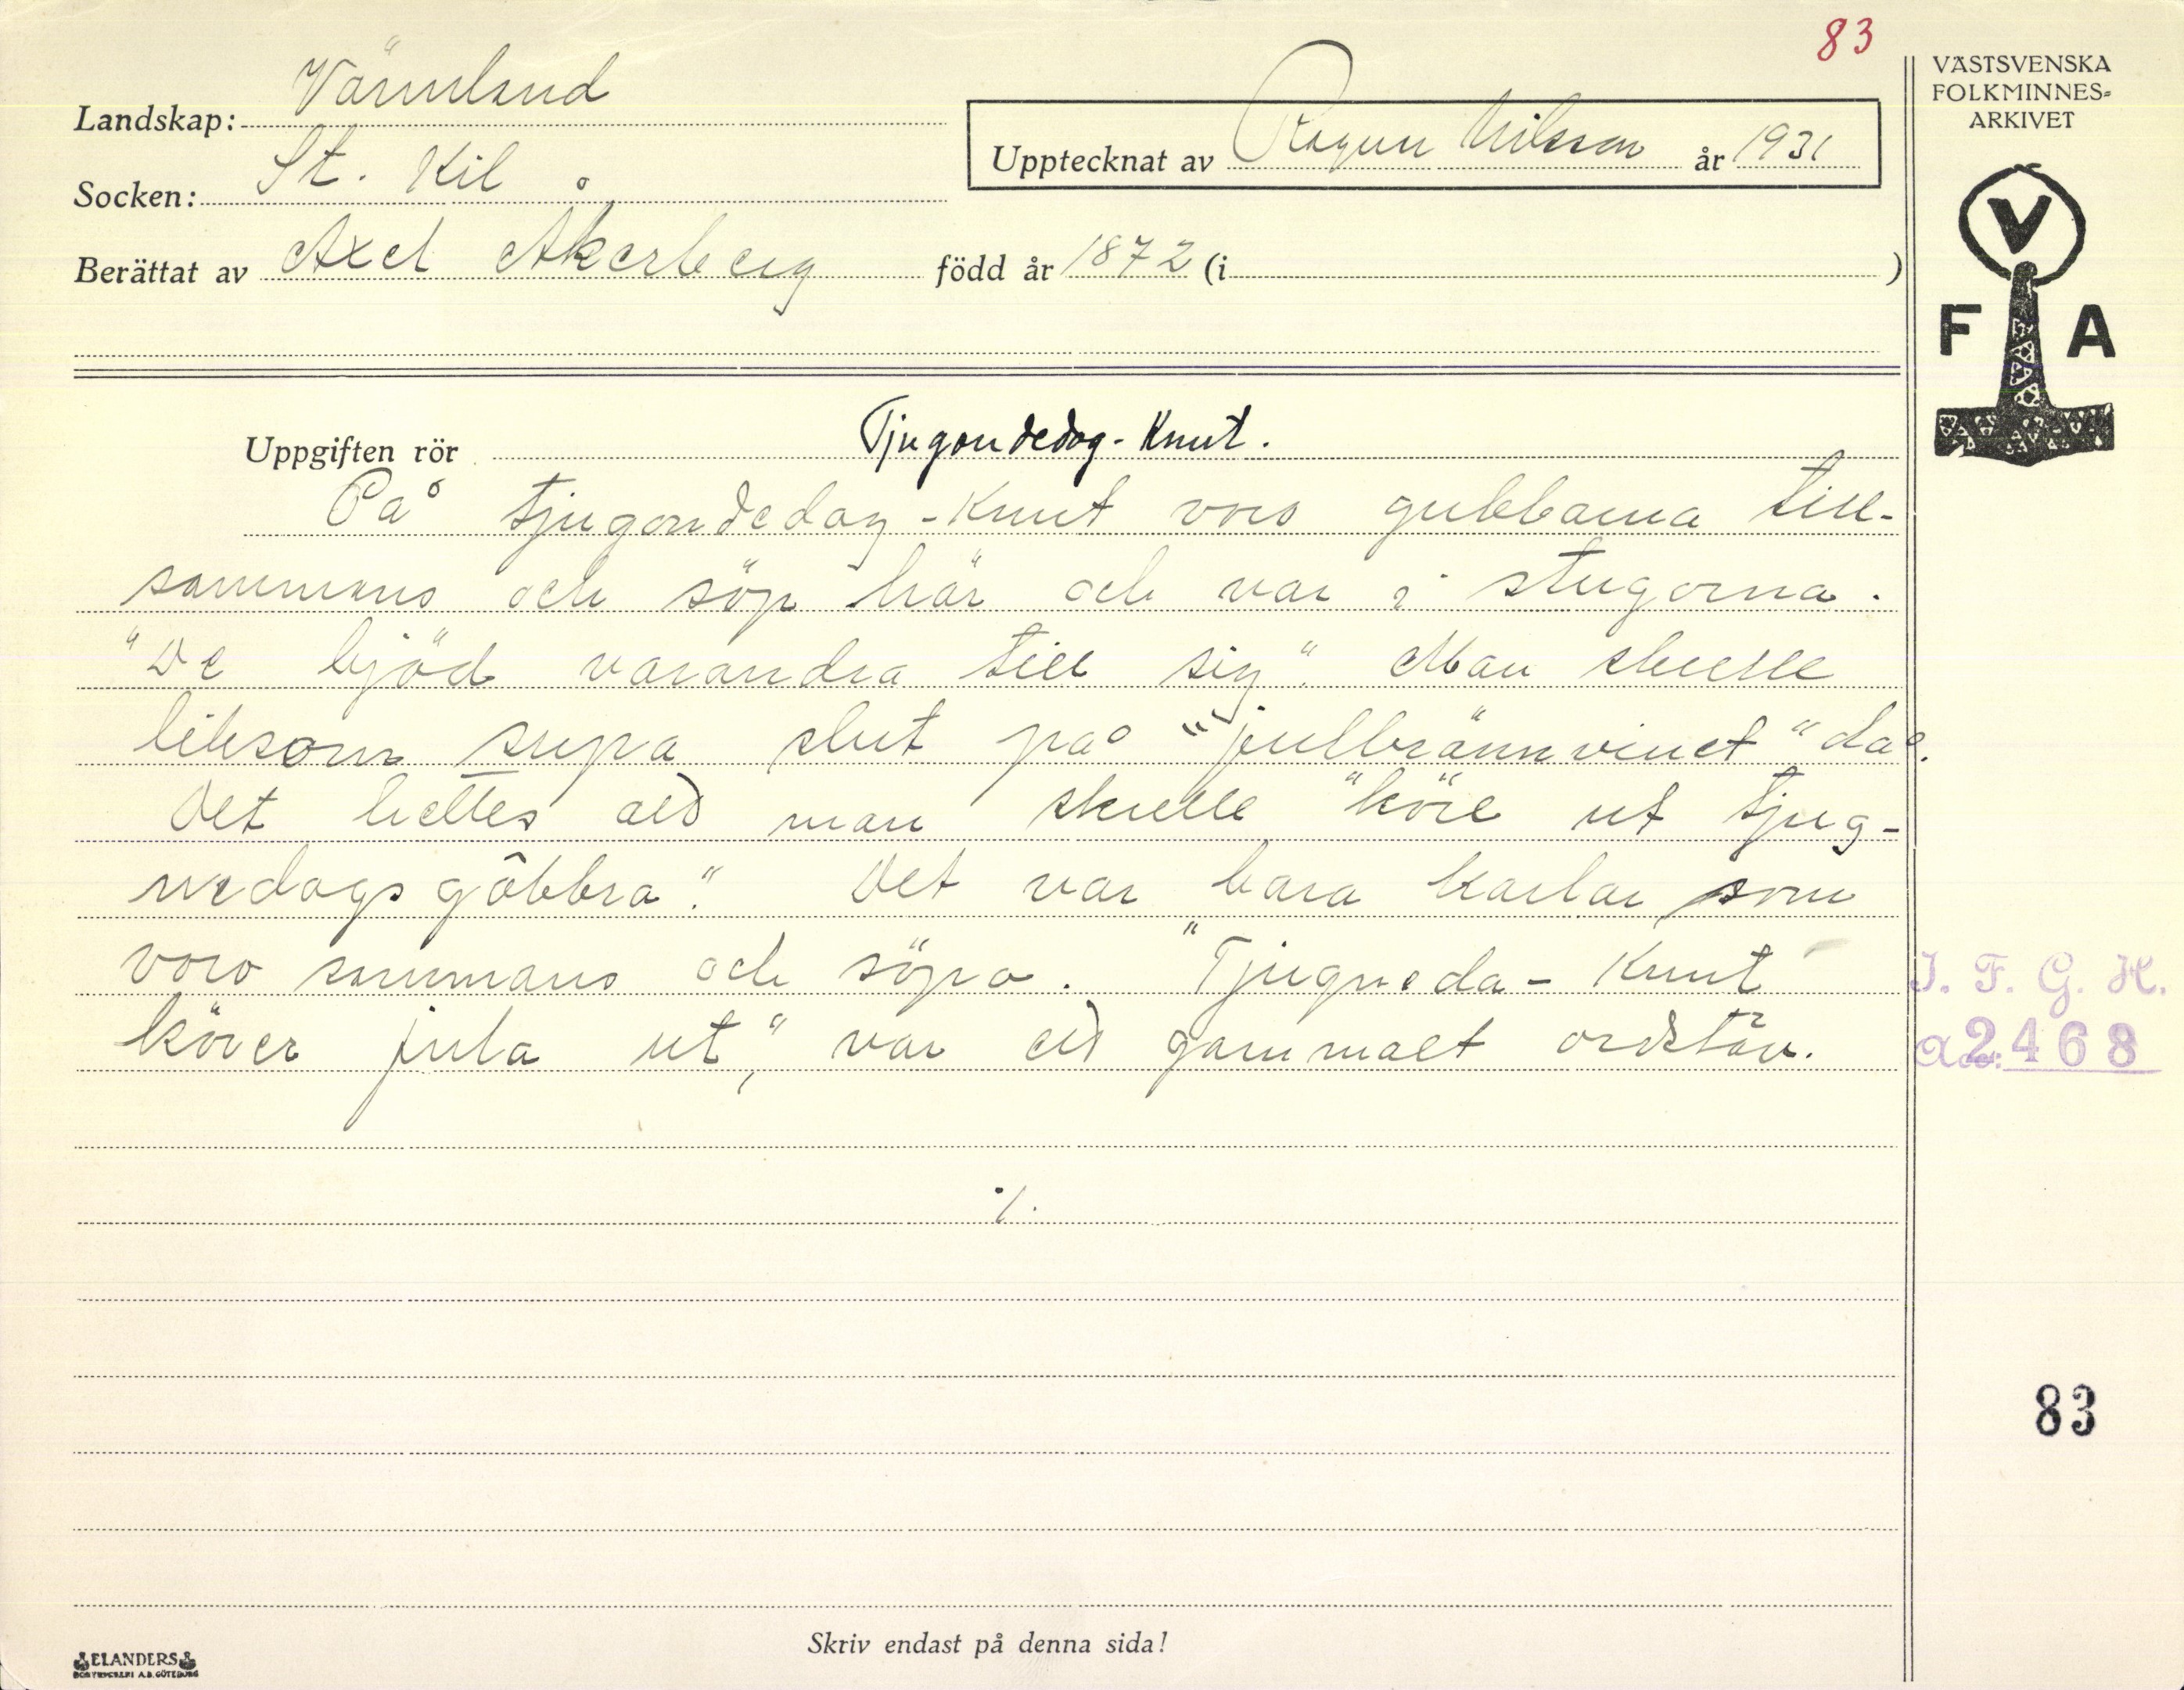 83
VÄSTSVENSKA
FOLKMINNES-
ARKIVET
Landskap: Värmland
Upptecknat av Ragnar Nilsson år 1931
Socken: St. Kil
Berättat av Axel Åkerberg född år 1872 (i )
V
F A
Uppgiften rör Tjugondedag-Knut.
På tjugondedag-Knut voro gubbarna till-
sammans och söp här och var i stugorna.
"De bjöd varandra till sig". Man skulle
liksom supa slut på "julbrännvinet" då.
Det hettes att man skulle "köre ut tjug-
nedagsgôbbra". Det var bara karlar som
voro sammans och söpo. "Tjugneda-Knut
körer jula ut", var ett gammalt ordstäv.
I. F. G. H.
2468
./.
83
Skriv endast på denna sida!
ELANDERS
BOKTRYCKERI A.B. GÖTEBORG